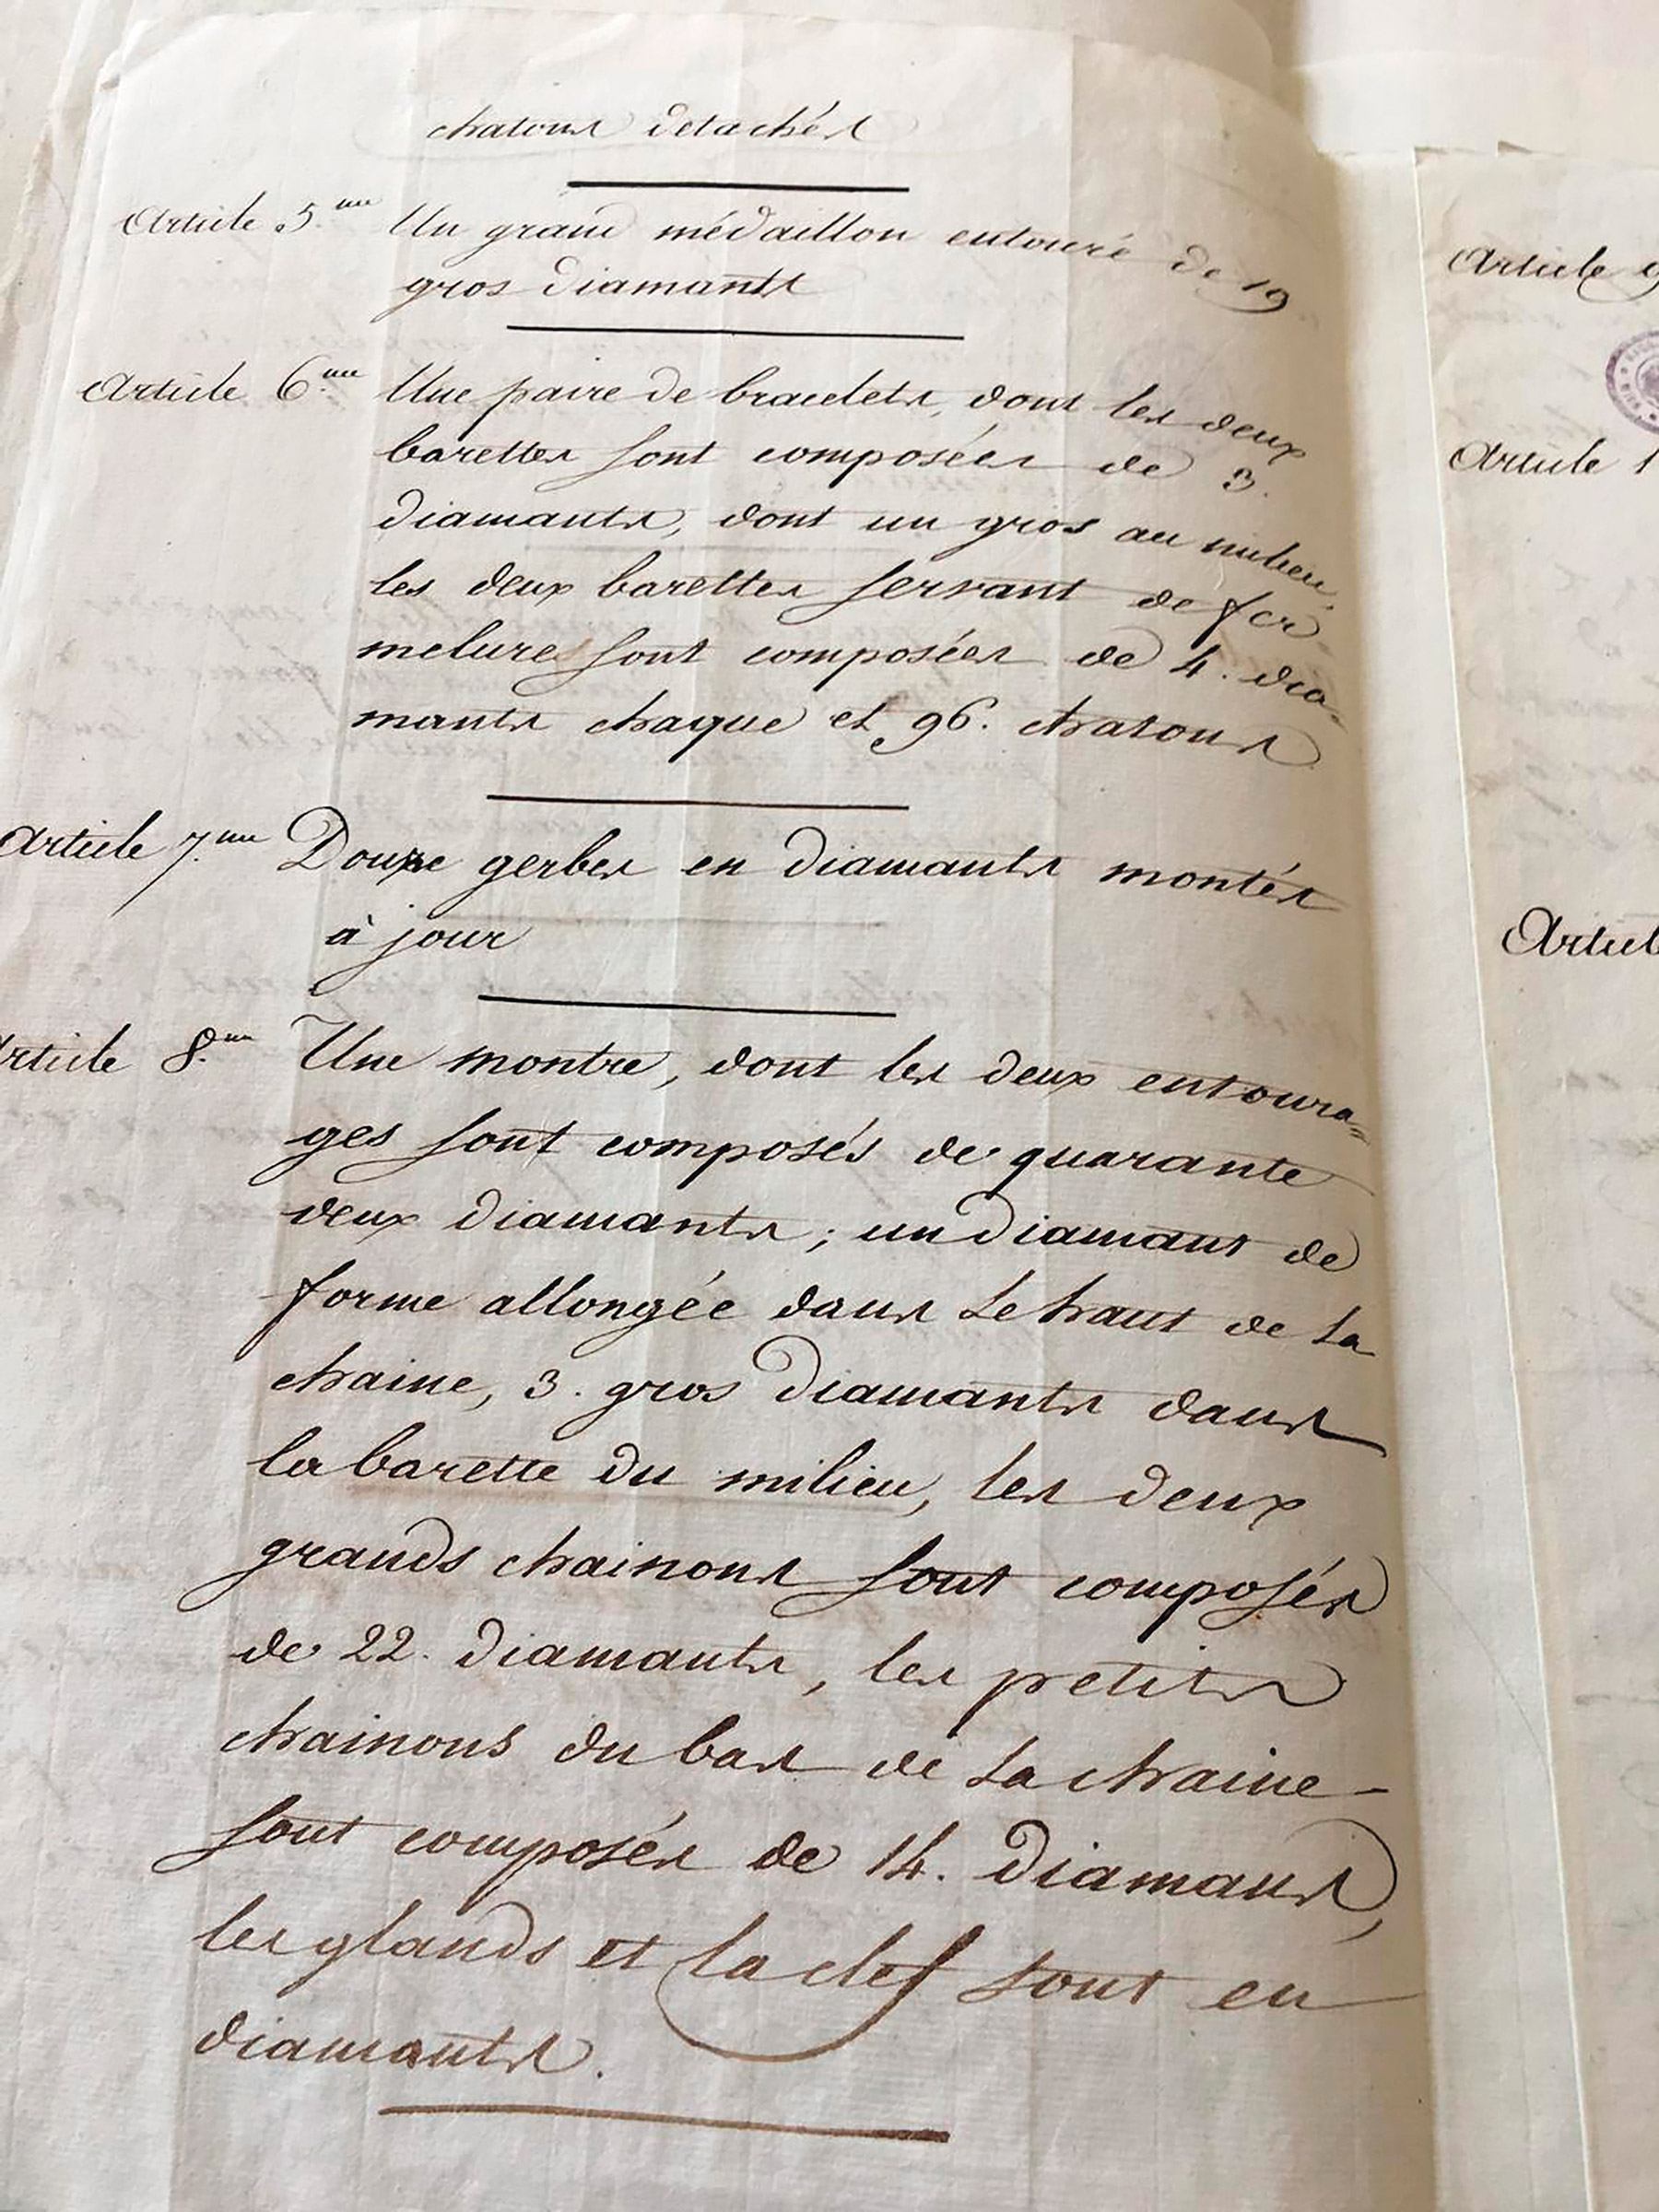 chatons detachés
Article 5.me Un grand médaillon entouré de 19
gros diamants
Article 6.me Une paire de bracelets, dont les deux
barettes sont composées de 3.
diamants, dont un gros au milieu,
les deux barettes servant de fer
metures sont composées de 4. dia-
mants chaque et 96. chatons
Article 7.me Douze gerbes en diamants montés
à jour
Article 8.me Une montre, dont les deux entoura=
ges sont composés de quarante
deux diamants; un diamant de
forme allongée dans le haut de la
chaine, 3. gros diamants dans
la barette du milieu, les deux
grands chainons sont composés
de 22. diamants, les petits
chainons du bas de la chaine -
sont composés de 14. diamans,
les glands et la clef sont en
diamants.
Article 9
Article 1
Articl